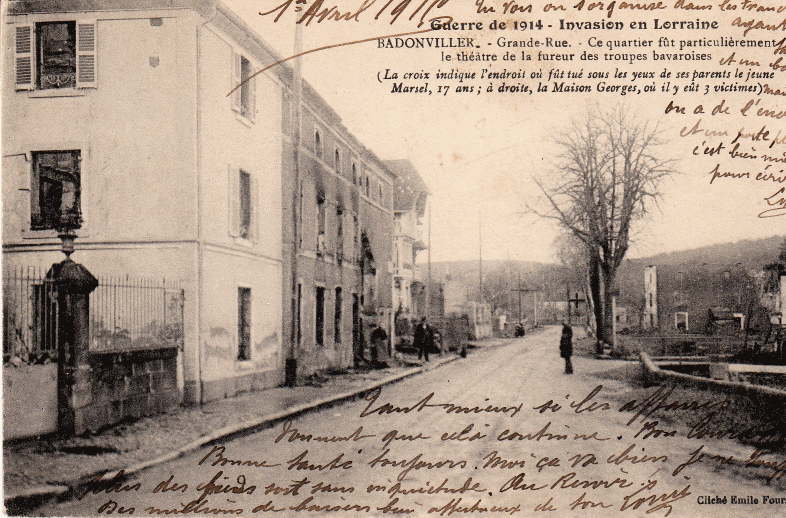 1er Avril 1915
Tu vois on s'organise dans les tranc
ayant
Guerre de 1914 - Invasion en Lorraine
BADONVILLER. - Grande-Rue. - Ce quartier fût particulièrement
le théâtre de la fureur des troupes bavaroises
et un
(La croix indique l'endroit où fût tué sous les yeux de ses parents le jeune
Marsel, 17 ans ; à droite, la Maison Georges, où il y eût 3 victimes)
on a de l'encr
et un porte pl
c'est bien mi
pour écri
Tant mieux si les affaires
donnent que cela continue. Bon courage
Bonne Santé toujours. Moi ça va bien je ne
des pieds soit sans inquiétude. Au Revoir.
Des millions de baisers bien affectueux de ton Louis
Cliché Emile Four